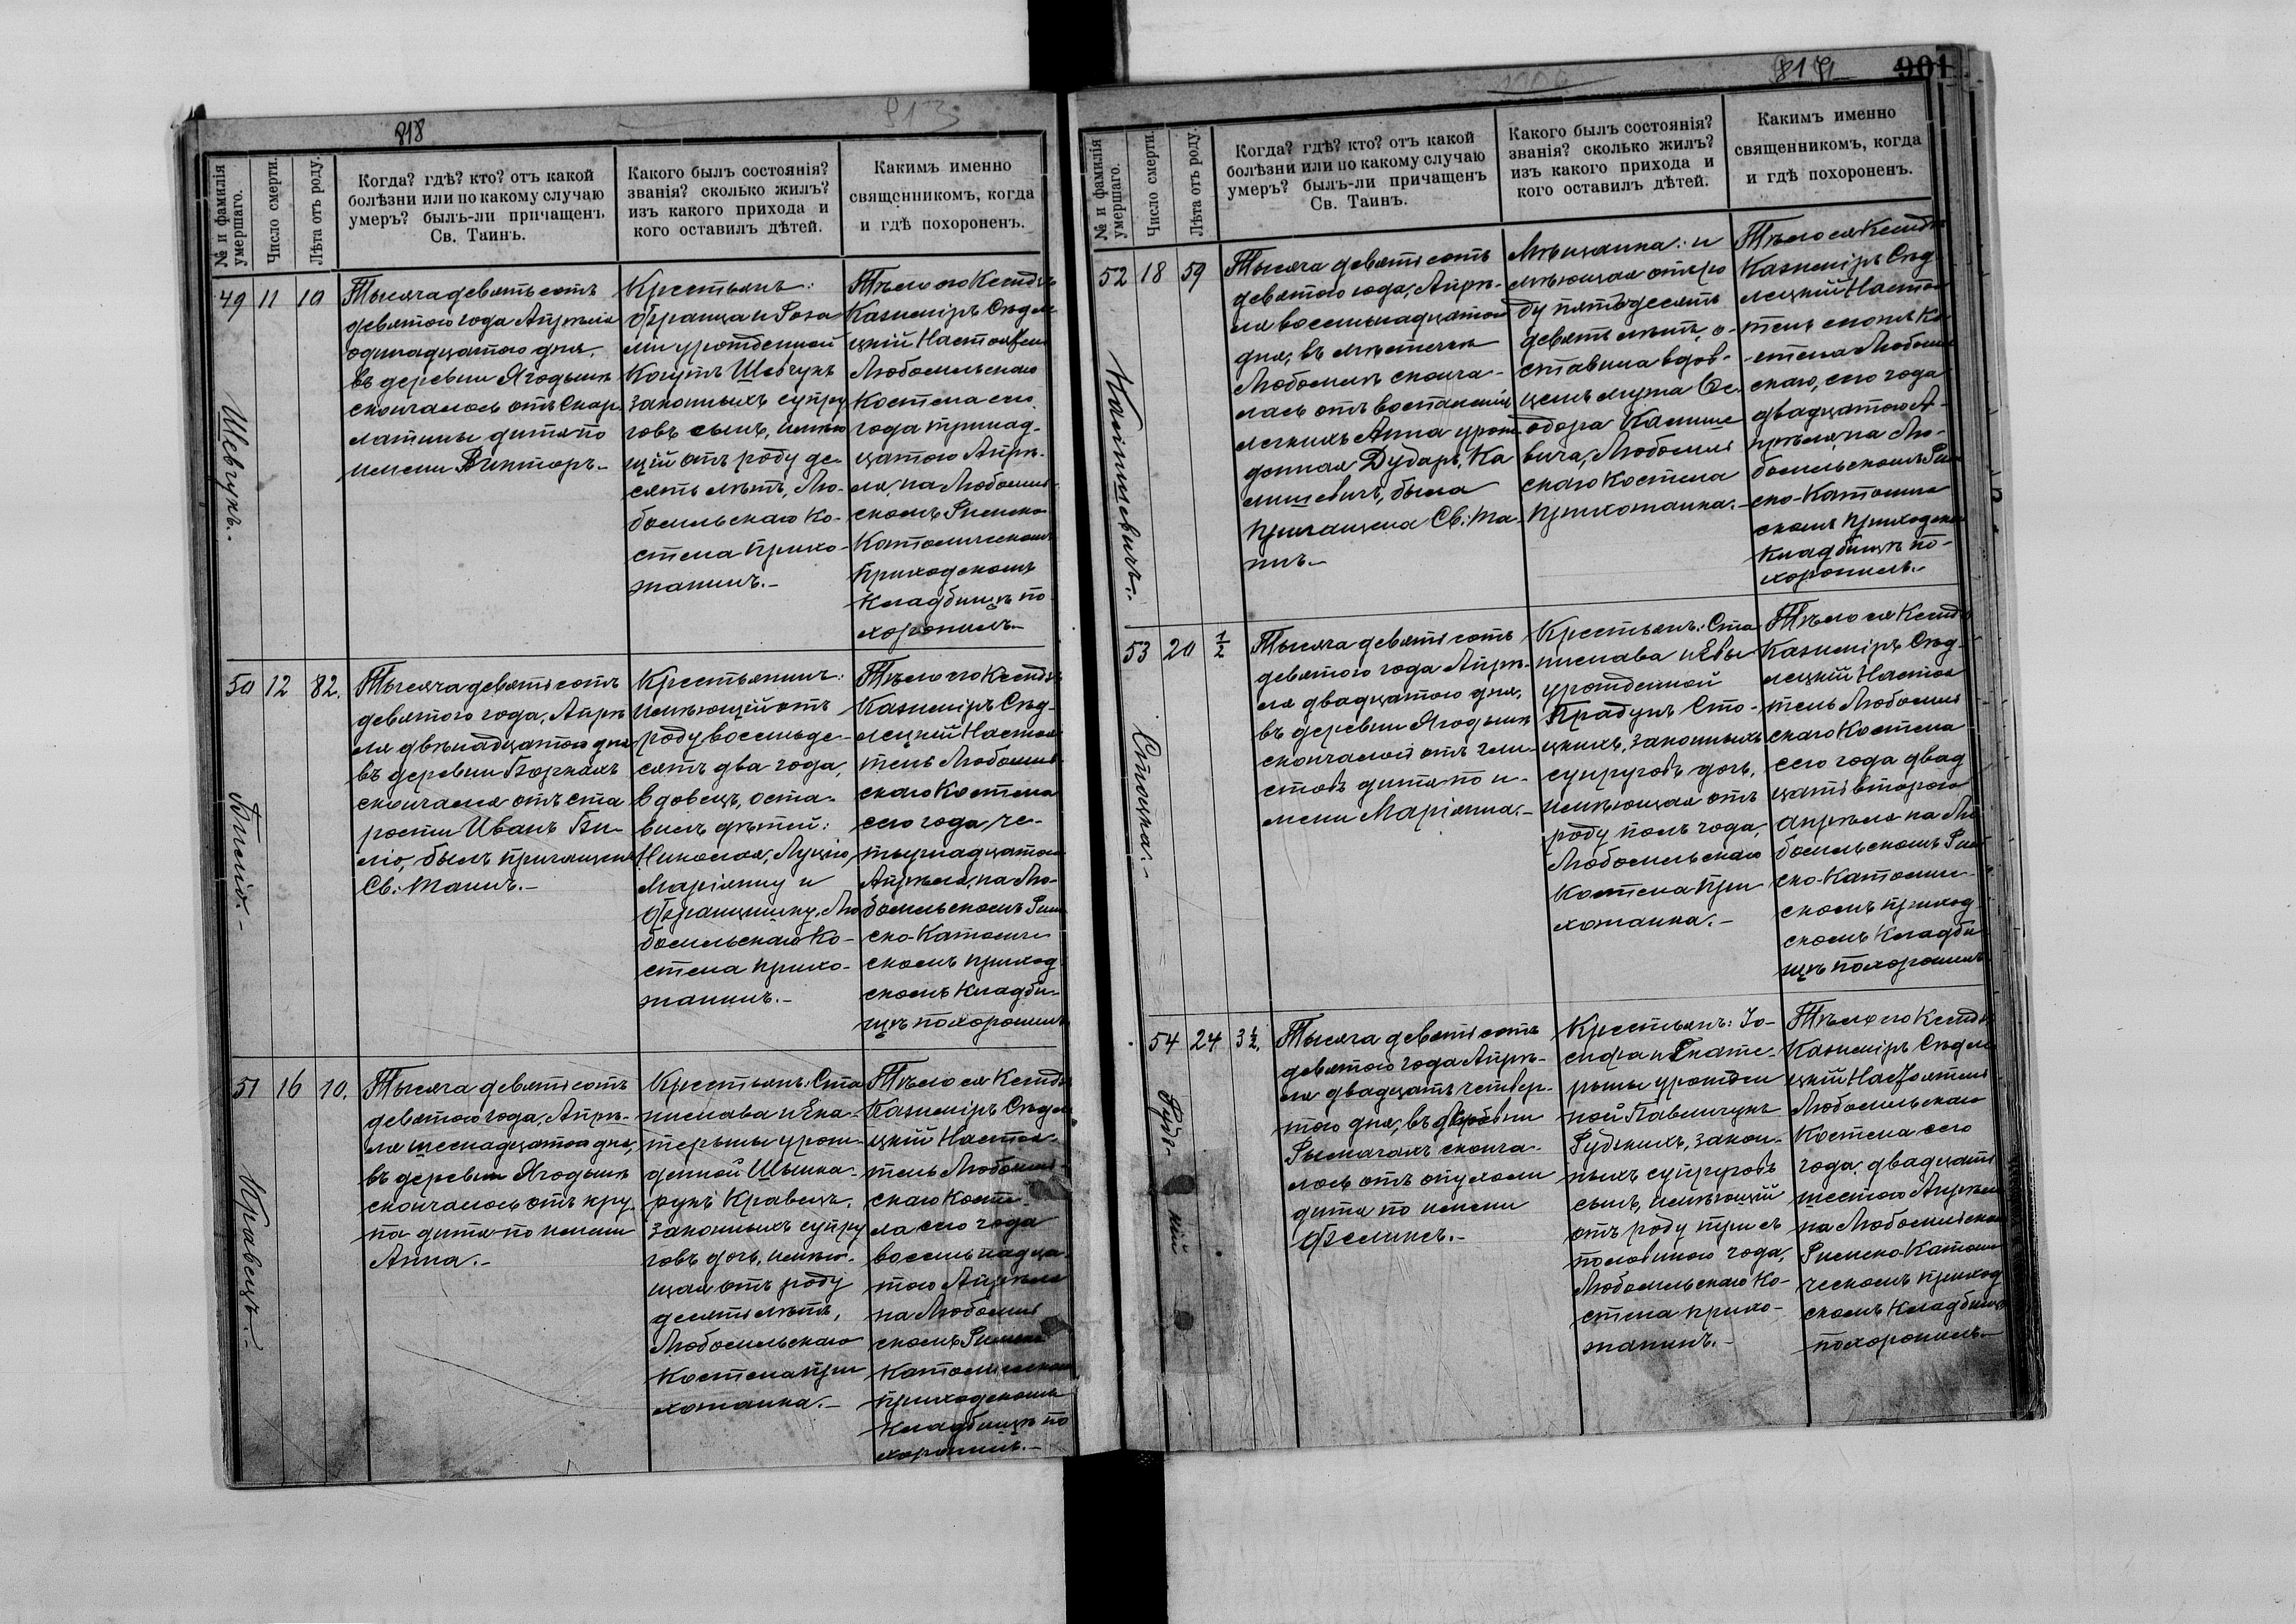 818
913
№ и фамилія умершаго.
Число смерти.
Лѣта отъ роду.
Когда? гдѣ? кто? отъ какой
болѣзни или по какому случаю
умеръ? былъ-ли причащенъ
Св. Таинъ.
Какого былъ состоянія?
званія? сколько жилъ?
изъ какого прихода и
кого оставилъ дѣтей.
Какимъ именно
священникомъ, когда
и гдѣ похороненъ.
49
Шевчукъ.
11
10
Тысяча девятьсотъ
девятого года Апрѣля
одинадцатого дня,
въ деревни Ягодынѣ
скончалось отъ Скар
латины дитя по
имени Викторъ.-
Крестьянъ:
Франца и Роза
ліи урожденной
Когутъ Шевчукъ
законныхъ супру
говъ сынъ, имѣю
щій отъ роду де
сять лѣтъ, Лю-
бомльскаго Ко-
стела прихо-
жанинъ.-
Тѣло его Ксендзъ
Казиміръ Сѣдле
цкій Настоятель
Любомльскаго
Костела сего
года тринад-
цатого Апрѣ-
ля, на Любомль
скомъ Римско
Католическомъ
Приходскомъ
Кладбищѣ по
хоронилъ.-
50
12
82.
Тысяча девятьсотъ
девятого года, Апрѣ
ля двѣнадцатого дня
въ деревни Боркахъ
скончался отъ ста
рости Иванъ
былъ причащенъ
Св: Таинъ.-
Крестьянинъ:
имѣющій отъ
роду восемьде-
сятъ два года,
вдовецъ, оста-
вилъ дѣтей:
Николая, Луцію,
Маріянну и
Францишку, Лю
бомльскаго Ко-
стела прихо-
жанинъ.-
Тѣло его Ксендзъ
Казиміръ Сѣд-
лецкій Настоя
тель Любомль
скаго Костела
сего года че-
тырнадцатого
Апрѣля, на Лю-
бомльскомъ Рим
ско-Католиче
скомъ приход
скомъ Кладби-
щѣ похоронилъ
51
Кравецъ.-
16
10.
Тысяча девятьсотъ
девятого года, Апрѣ-
ля шеснадцатого дня,
въ деревни Ягодынѣ
скончалось отъ кру
па дитя по имени
Анна.-
Крестьянъ: Ста
нислава и Ека-
терыны урож-
денной Шинка-
рукъ Кравецъ,
законныхъ супру
говъ дочь, имѣю-
щая отъ роду
десять лѣтъ,
Любомльскаго
Костела при
хожанка.-
Тѣло ея Ксендзъ
Казиміръ Сѣдле
цкій Настоя-
тель Любомль-
скаго Косте-
ла сего года
восемнадца-
того Апрѣля
на Любомль
скомъ Римско
Католическомъ
Приходскомъ
Кладбищѣ по
хоронилъ.-
901
№ и фамилія умершаго.
Число смерти.
Лѣта отъ роду.
Когда? гдѣ? кто? отъ какой
болѣзни или по какому случаю
умеръ? былъ-ли причащенъ
Св. Таинъ.
Какого былъ состоянія?
званія? сколько жилъ?
изъ какого прихода и
кого оставилъ дѣтей.
Какимъ именно
священникомъ, когда
и гдѣ похороненъ.
52
Калишевичъ.-
18
59
Тысяча девятьсотъ
девятого года, Апрѣ-
ля восемнадцатого
дня, въ мѣстечкѣ
Любомлѣ сконча-
лась отъ воспаленія
легкихъ Анна урож
донная Дударъ, Ка
лишевичъ, была
причащена Св: Та-
инъ.-
Мѣщанка: и
мѣющая отъ ро
ду пятьдесятъ
девять лѣтъ, о-
ставила вдов-
цемъ мужа
Калише
вича, Любомль
скаго Костела
прихожанка.-
Тѣло ея Ксендзъ
Казиміръ Сѣд
лецкій Настоя
тель Ко
стела Любомль
скаго, сего года
двадцатого А-
прѣля, на Лю-
бомльскомъ Рим
ско-Католиче
скомъ Приходском
Кладбищѣ по-
хоронилъ.-
53
Стоцка.-
20
½
Тысяча девятьсотъ
девятого года Апрѣ-
ля двадцатого дня,
въ деревни Ягодынѣ
скончалось отъ гли-
стовъ дитя по и-
мени Маріянна.-
Крестьянъ: Ста
нислава и Евы
урожденной
Крадунъ Сто-
цкихъ, законныхъ
супруговъ дочь,
имѣющая отъ
роду полъ года,
Любомльскаго
Костела при
хожанка.-
Тѣло ея Ксендзъ
Казиміръ Сѣд-
лецкій Настоя
тель Любомль
скаго Костела
сего года двад
цать второго
Апрѣля на Лю
бомльскомъ Рим
ско-Католиче
скомъ приход
скомъ Кладби
щѣ похоронилъ
54
24
3½.
Тысяча девятьсотъ
девятого года Апрѣ-
ля двадцать четвер-
того дня, въ деревни
Рымачахъ сконча-
лось отъ опухоли
дитя по имени
Феликсъ.-
Крестьянъ: Іо-
сифа и Екате-
рыны урожден
ной Павличукъ
Рудзкихъ, закон-
ныхъ супруговъ
сынъ, имѣющій
отъ роду три съ
половиною года,
Любомльскаго Ко-
стела прихо-
жанинъ.-
Тѣло его Ксендзъ
Казиміръ Сѣдле
цкій Настоятель
Любомльскаго
Костела сего
года, двадцать
шестого Апрѣля
на Любомльском
Римско-Католи
ческомъ приход
скомъ Кладбищѣ
похоронилъ.-